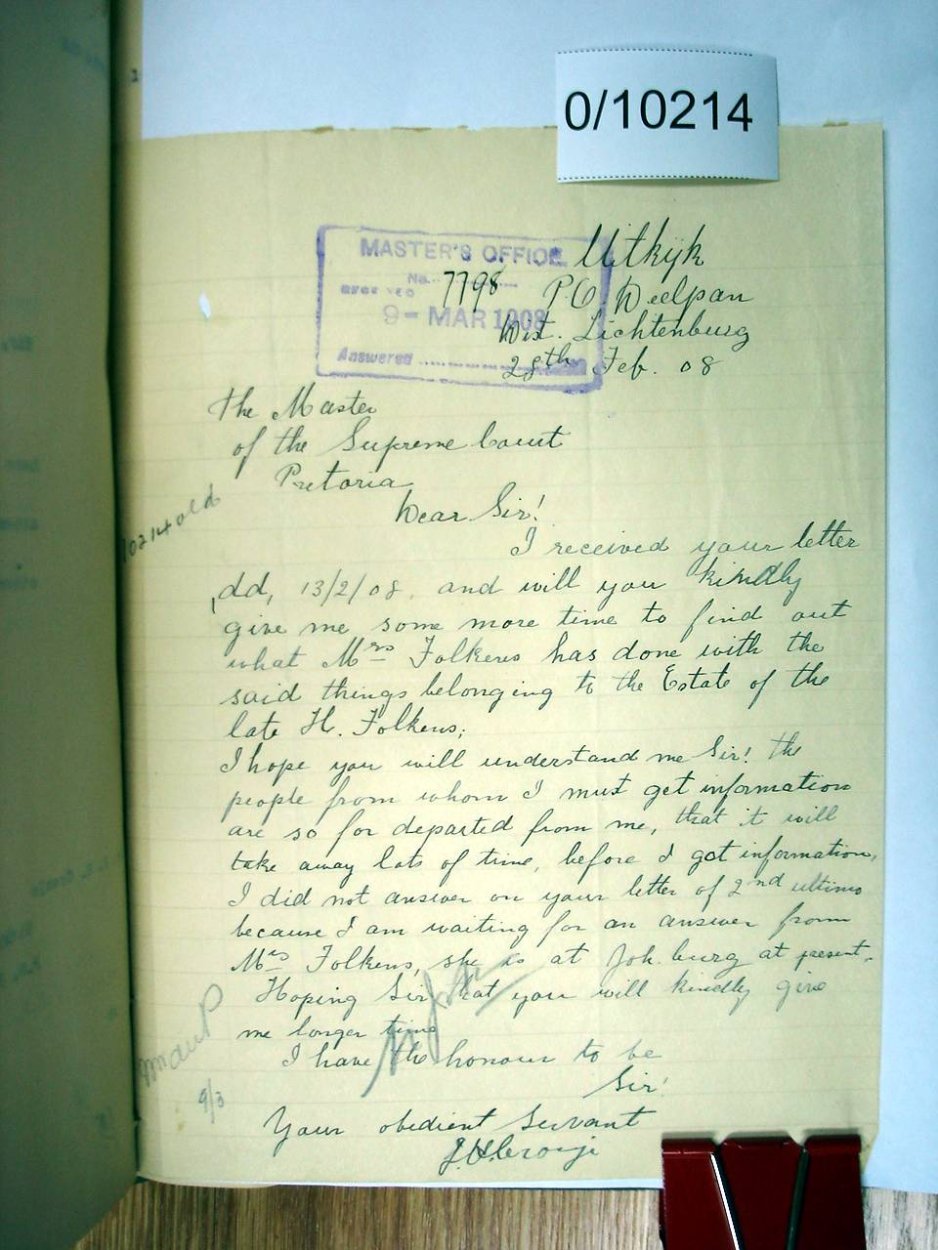 0/10214
MASTER'S OFFICE
No. 7798
RECEIVED
9 - MAR 1908
Answered
Uitkijk
P.O. Deelpan
Dist. Lichtenburg
28th Feb. 08
The Master
of the Supreme Court
Pretoria
10214 old
Dear Sir!
I received your letter
dd, 13/2/08, and will you kindly
give me some more time to find out
what Mrs Folkens has done with the
said things belonging to the Estate of the
late H. Folkens;
I hope you will understand me Sir! the
people from whom I must get information
are so for departed from me, that it will
take away lots of time, before I got information,
I did not answer on your letter of 2nd ultimo
because I am waiting for an answer from
Mrs Folkens, she is at Joh.burg at present.
Hoping Sir that you will kindly give
me longer time
I have the honour to be
Sir!
9/3
Your obedient Servant